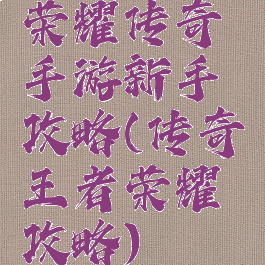 荣耀传奇
手游新手
攻略(传奇
王者荣耀
攻略)